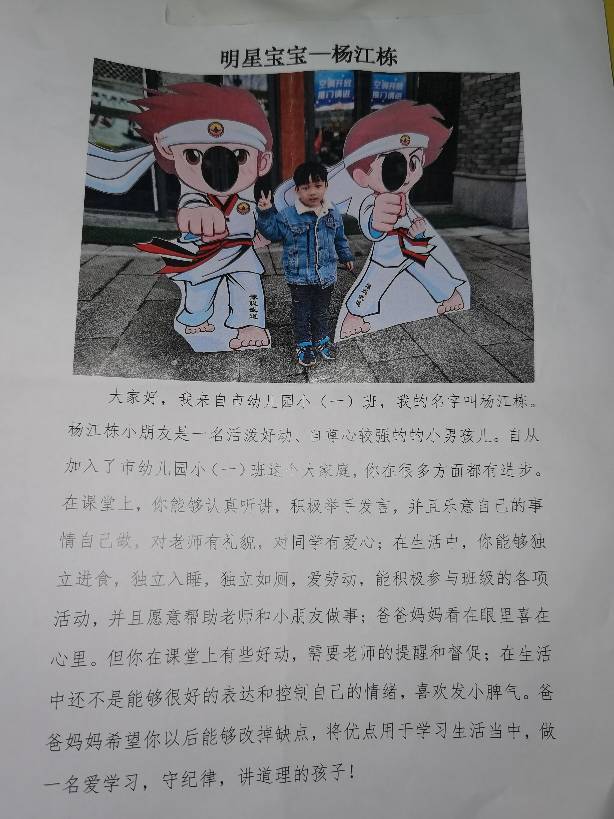 明星宝宝—杨江栋
空调开放
推门请进
空调开放
推门请进
大家好，我来自市幼儿园小（一）班，我的名字叫杨江栋。
杨江栋小朋友是一名活泼好动、自尊心较强的的小男孩儿。自从
加入了市幼儿园小（一）班这个大家庭，你在很多方面都有进步。
在课堂上，你能够认真听讲，积极举手发言，并且乐意自己的事
情自己做，对老师有礼貌，对同学有爱心；在生活中，你能够独
立进食，独立入睡，独立如厕，爱劳动，能积极参与班级的各项
活动，并且愿意帮助老师和小朋友做事；爸爸妈妈看在眼里喜在
心里。但你在课堂上有些好动，需要老师的提醒和督促；在生活
中还不是能够很好的表达和控制自己的情绪，喜欢发小脾气。爸
爸妈妈希望你以后能够改掉缺点，将优点用于学习生活当中，做
一名爱学习，守纪律，讲道理的孩子！